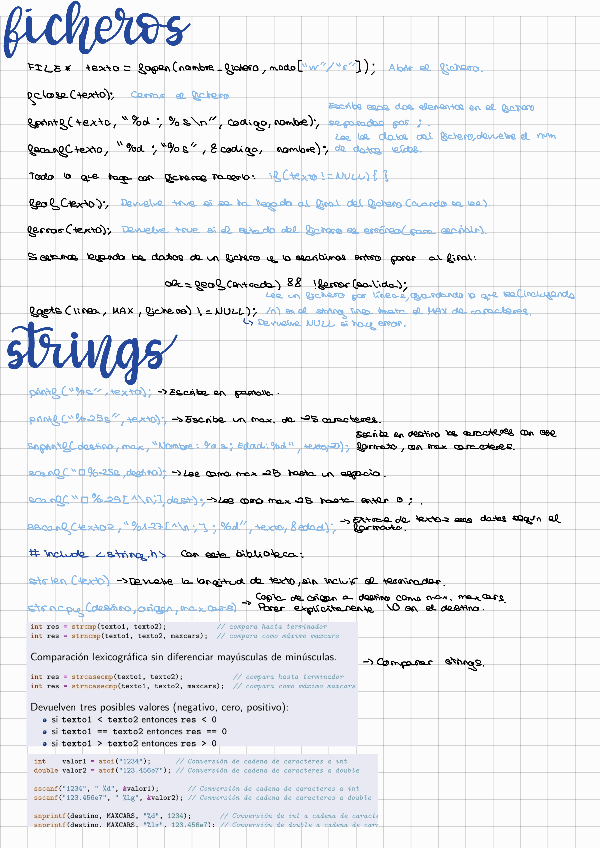 ficheros
FILE * texto = fopen(nombre_fichero, modo["w"/"r"]); Abrir el fichero.
fclose(texto); Cerrar el fichero
fprintf(texto, "%d ; %s\n", codigo, nombre); Escribe esos dos elementos en el fichero separados por ;
fscanf(texto, "%d ; "%s", &codigo, nombre); Lee los datos del fichero, devuelve el num de datos leídos.
Todo lo que haga con ficheros hacerlo: if(texto != NULL){ }
feof(texto); Devuelve true si se ha llegado al final del fichero (cuando se lee)
ferror(texto); Devuelve true si el estado del fichero es erróneo (para escribir).
Si estamos leyendo los datos de un fichero y lo escribimos en otro poner al final:
ok = feof(entrada) && !ferror(salida);
Lee un fichero por líneas, guardando lo que lee (incluyendo
fgets(linea, MAX, fichero) != NULL); /n) en el string linea hasta el MAX de caracteres.
↳ Devuelve NULL si hay error.
strings
printf("%s", texto); → Escribe en pantalla.
printf("%25s", texto); → Escribe un max. de 25 caracteres.
snprintf(destino, max, "Nombre: %s; Edad: %d", texto, 27); Escribe en destino los caracteres con ese formato, con max caracteres.
scanf("□%25s, destino); → Lee como max 25 hasta un espacio.
scanf("□%25[^\n;], dest); → Lee como max 25 hasta enter o ;
sscanf(texto2, "%127[^\n;] ; %d", texto, &edad); → Extrae de texto2 esos datos según el formato.
# include <string.h> Con esta biblioteca:
strlen (texto) → Devuelve la longitud de texto, sin incluir el terminador.
strncpy (destino, origen, maxcars) → Copia de origen a destino como max. maxcars. Poner explícitamente \0 en el destino.
int res = strcmp(texto1, texto2); // compara hasta terminador
int res = strncmp(texto1, texto2, maxcars); // compara como máximo maxcars
Comparación lexicográfica sin diferenciar mayúsculas de minúsculas.
→ Comparar strings.
int res = strcasecmp(texto1, texto2); // compara hasta terminador
int res = strncasecmp(texto1, texto2, maxcars); // compara como máximo maxcars
Devuelven tres posibles valores (negativo, cero, positivo):
• si texto1 < texto2 entonces res < 0
• si texto1 == texto2 entonces res == 0
• si texto1 > texto2 entonces res > 0
int valor1 = atoi("1234"); // Conversión de cadena de caracteres a int
double valor2 = atof("123.456e7"); // Conversión de cadena de caracteres a double
sscanf("1234", " %d", &valor1); // Conversión de cadena de caracteres a int
sscanf("123.456e7", " %lg", &valor2); // Conversión de cadena de caracteres a double
snprintf(destino, MAXCARS, "%d", 1234); // Conversión de int a cadena de caract
snprintf(destino, MAXCARS, "%lg", 123.456e7); // Conversión de double a cadena de car